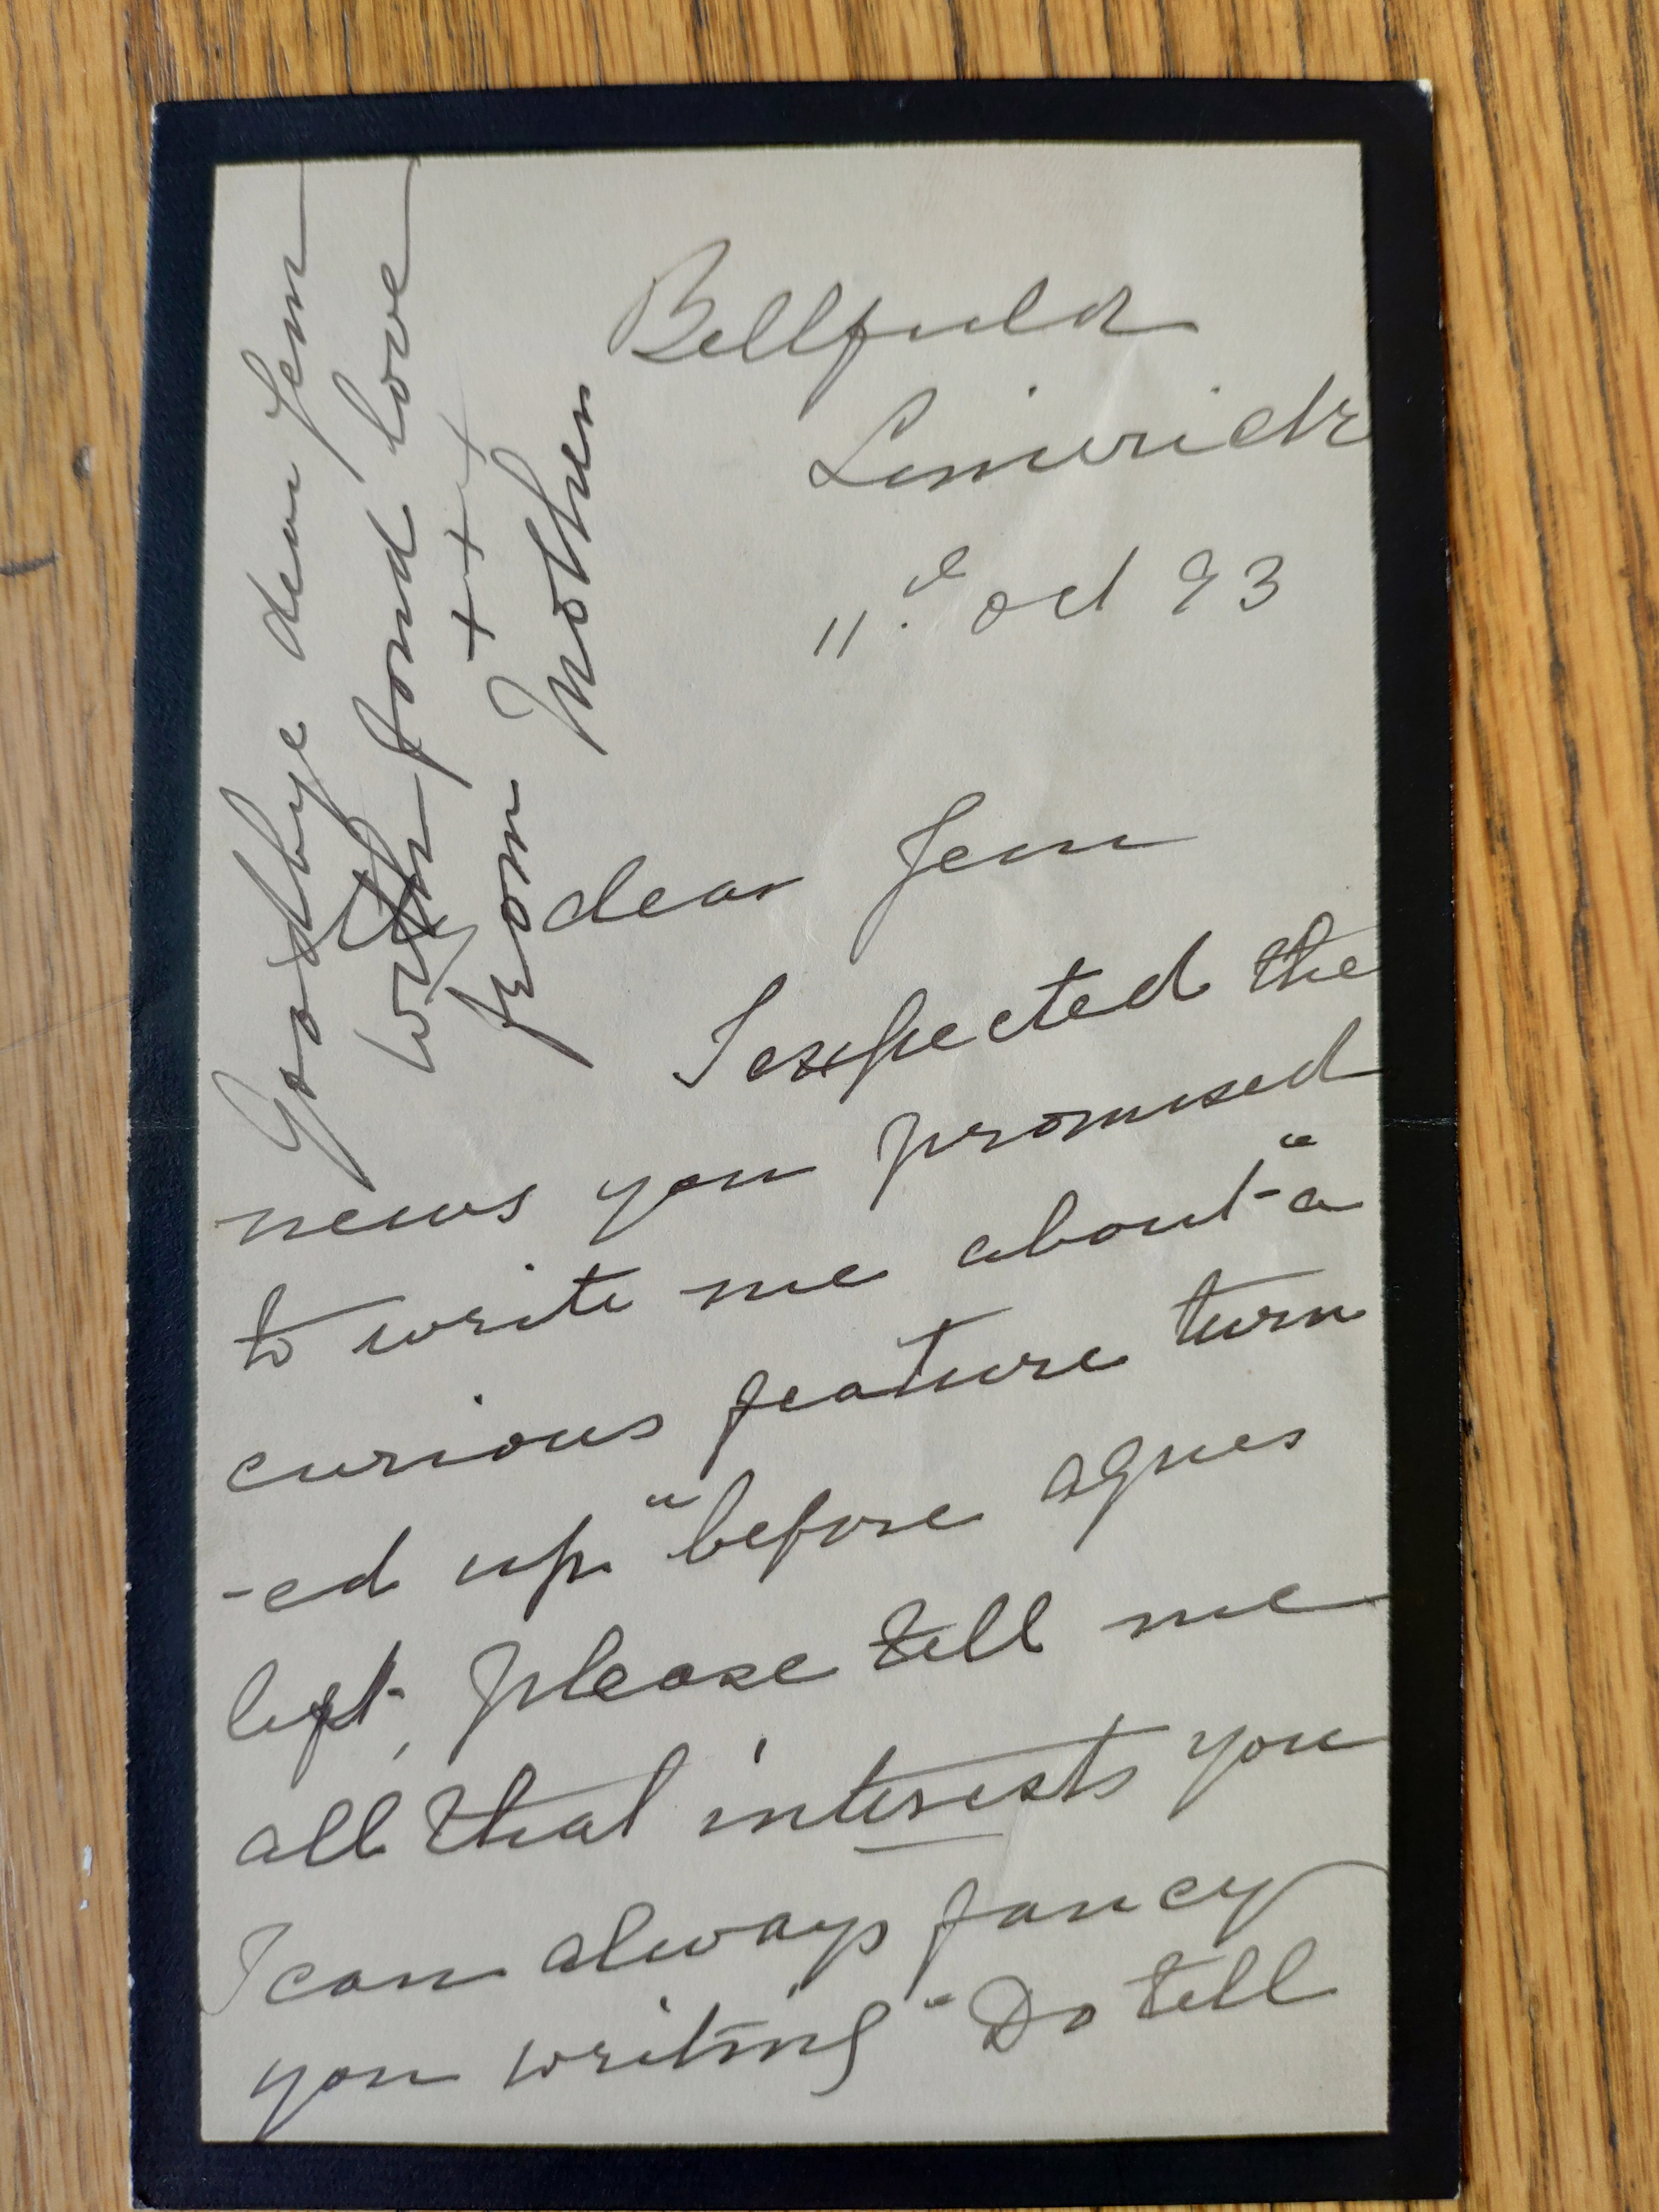 Bellfield
Limerick
11th oct 93
dear Jem
I expected the
news you promised
to write me about "a
curious feature turn
-ed up" before agnes
left, please tell me
all that interests you
I can always fancy
you writing "Do tell
Goodbye dear Jem
with fond love
+ + + +
from Mother